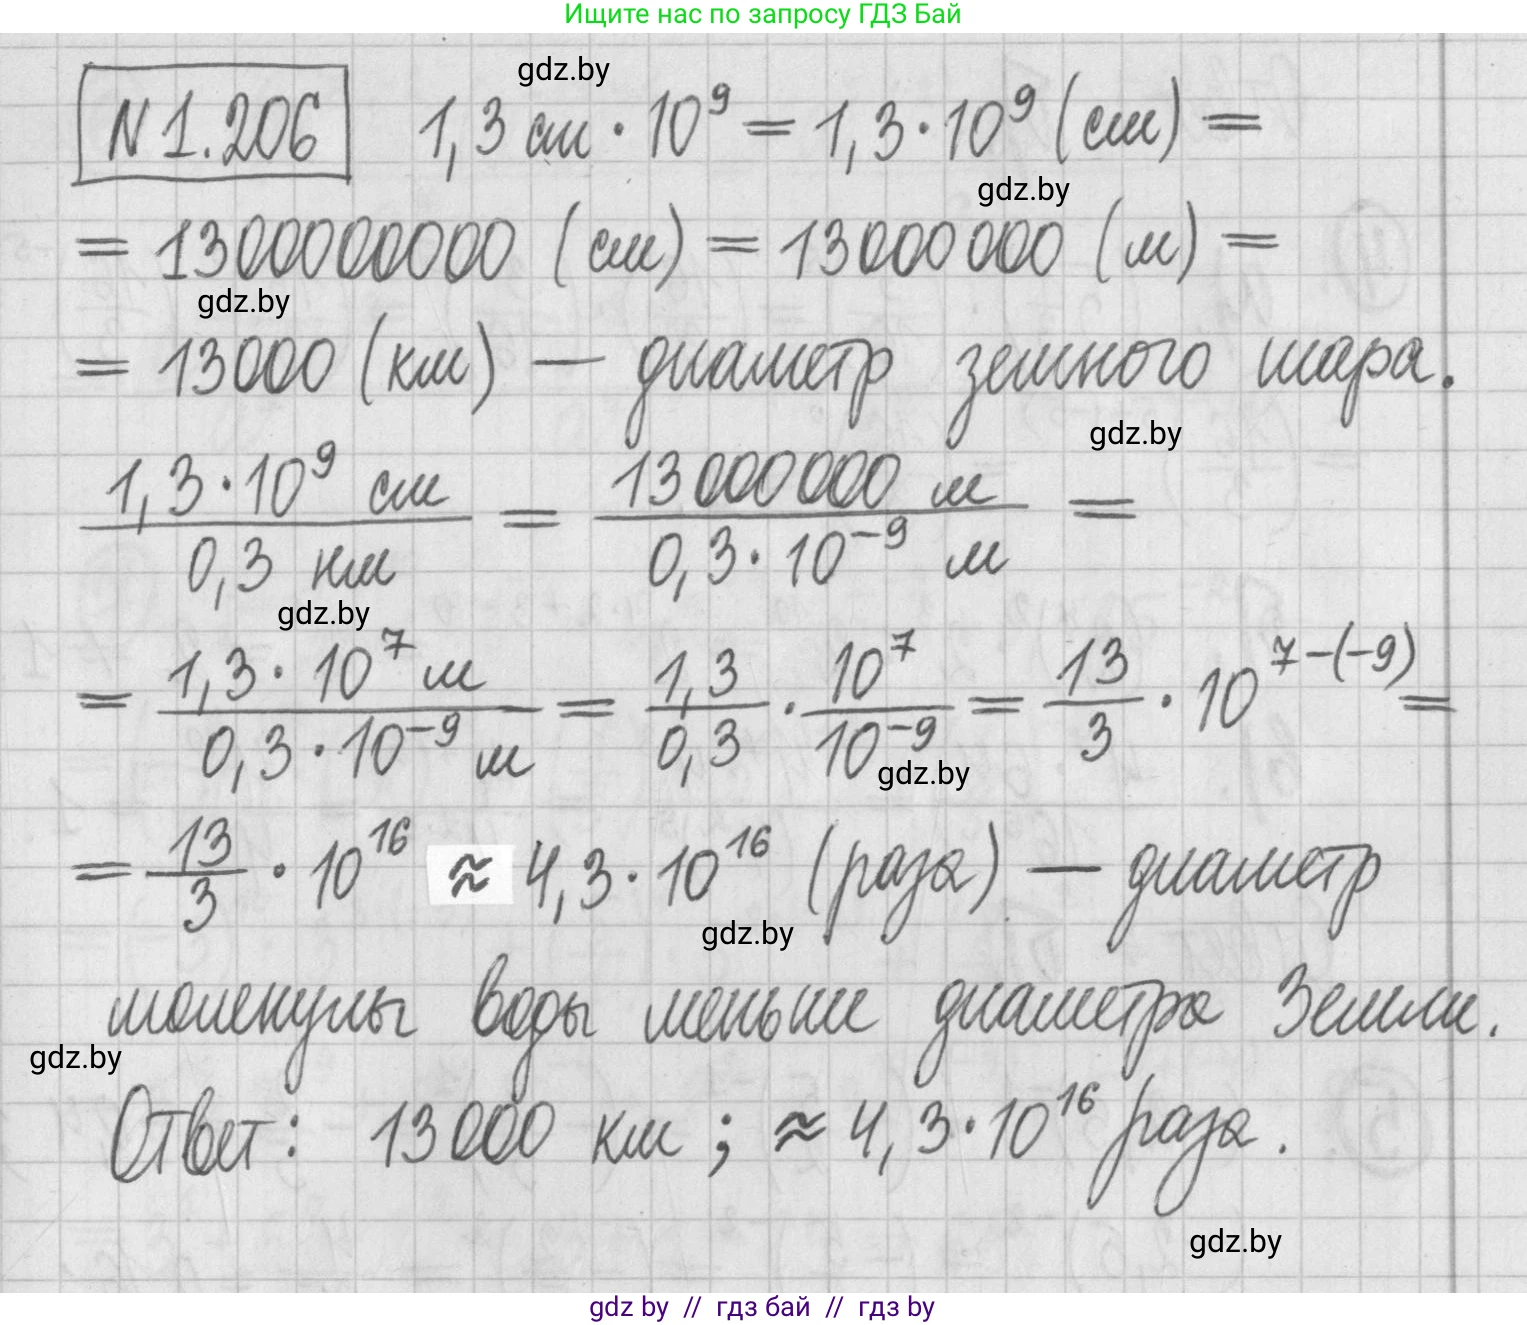 Ищите нас по запросу ГДЗ Бай
gdz.by
N 1.206 1,3 см · 10⁹ = 1,3 · 10⁹ (см) =
gdz.by
= 1300000000 (см) = 13000000 (м) =
gdz.by
= 13000 (км) — диаметр земного шара.
gdz.by
1,3 · 10⁹ см / 0,3 нм = 13000000 м / 0,3 · 10⁻⁹ м =
gdz.by
= 1,3 · 10⁷ м / 0,3 · 10⁻⁹ м = 1,3 / 0,3 · 10⁷ / 10⁻⁹ = 13 / 3 · 10⁷⁻⁽⁻⁹⁾ =
gdz.by
= 13 / 3 · 10¹⁶ ≈ 4,3 · 10¹⁶ (раза) — диаметр
gdz.by
молекулы воды меньше диаметра Земли.
gdz.by
Ответ: 13000 км ; ≈ 4,3 · 10¹⁶ раза.
gdz.by
gdz by // гдз бай // гдз by